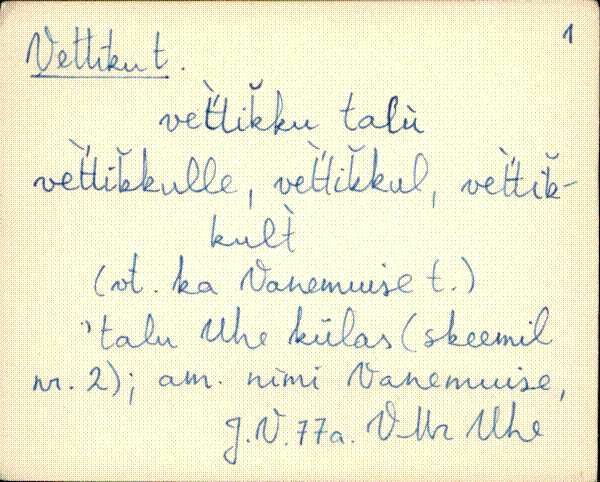 1
Vettiku t.
vet̀tik̆ku talù
vet̀tik̆kulle, vet̀tik̆kul, vet̀tik̆-
kult̀
(vt. ka Vanemuise t.)
'talu Uhe külas (skeemil
nr. 2); am. nimi Vanemuise,
J.V. 77a. V-Mr Uhe